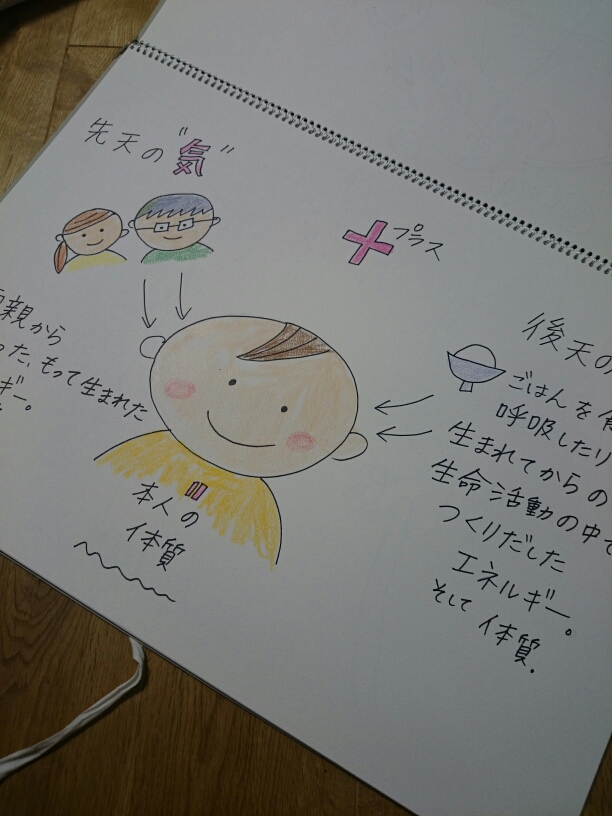 先天の"気"
プラス
親から
った、もって生まれた
ギー。
後天の
ごはんを
呼吸したり
生まれてからの
生命活動の中で
つくりだした
エネルギー。
そして体質.
本人の
体質